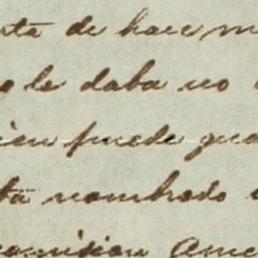 rta de hace m
o le daba no
ien puede qua
ta nombrado
comision Ame